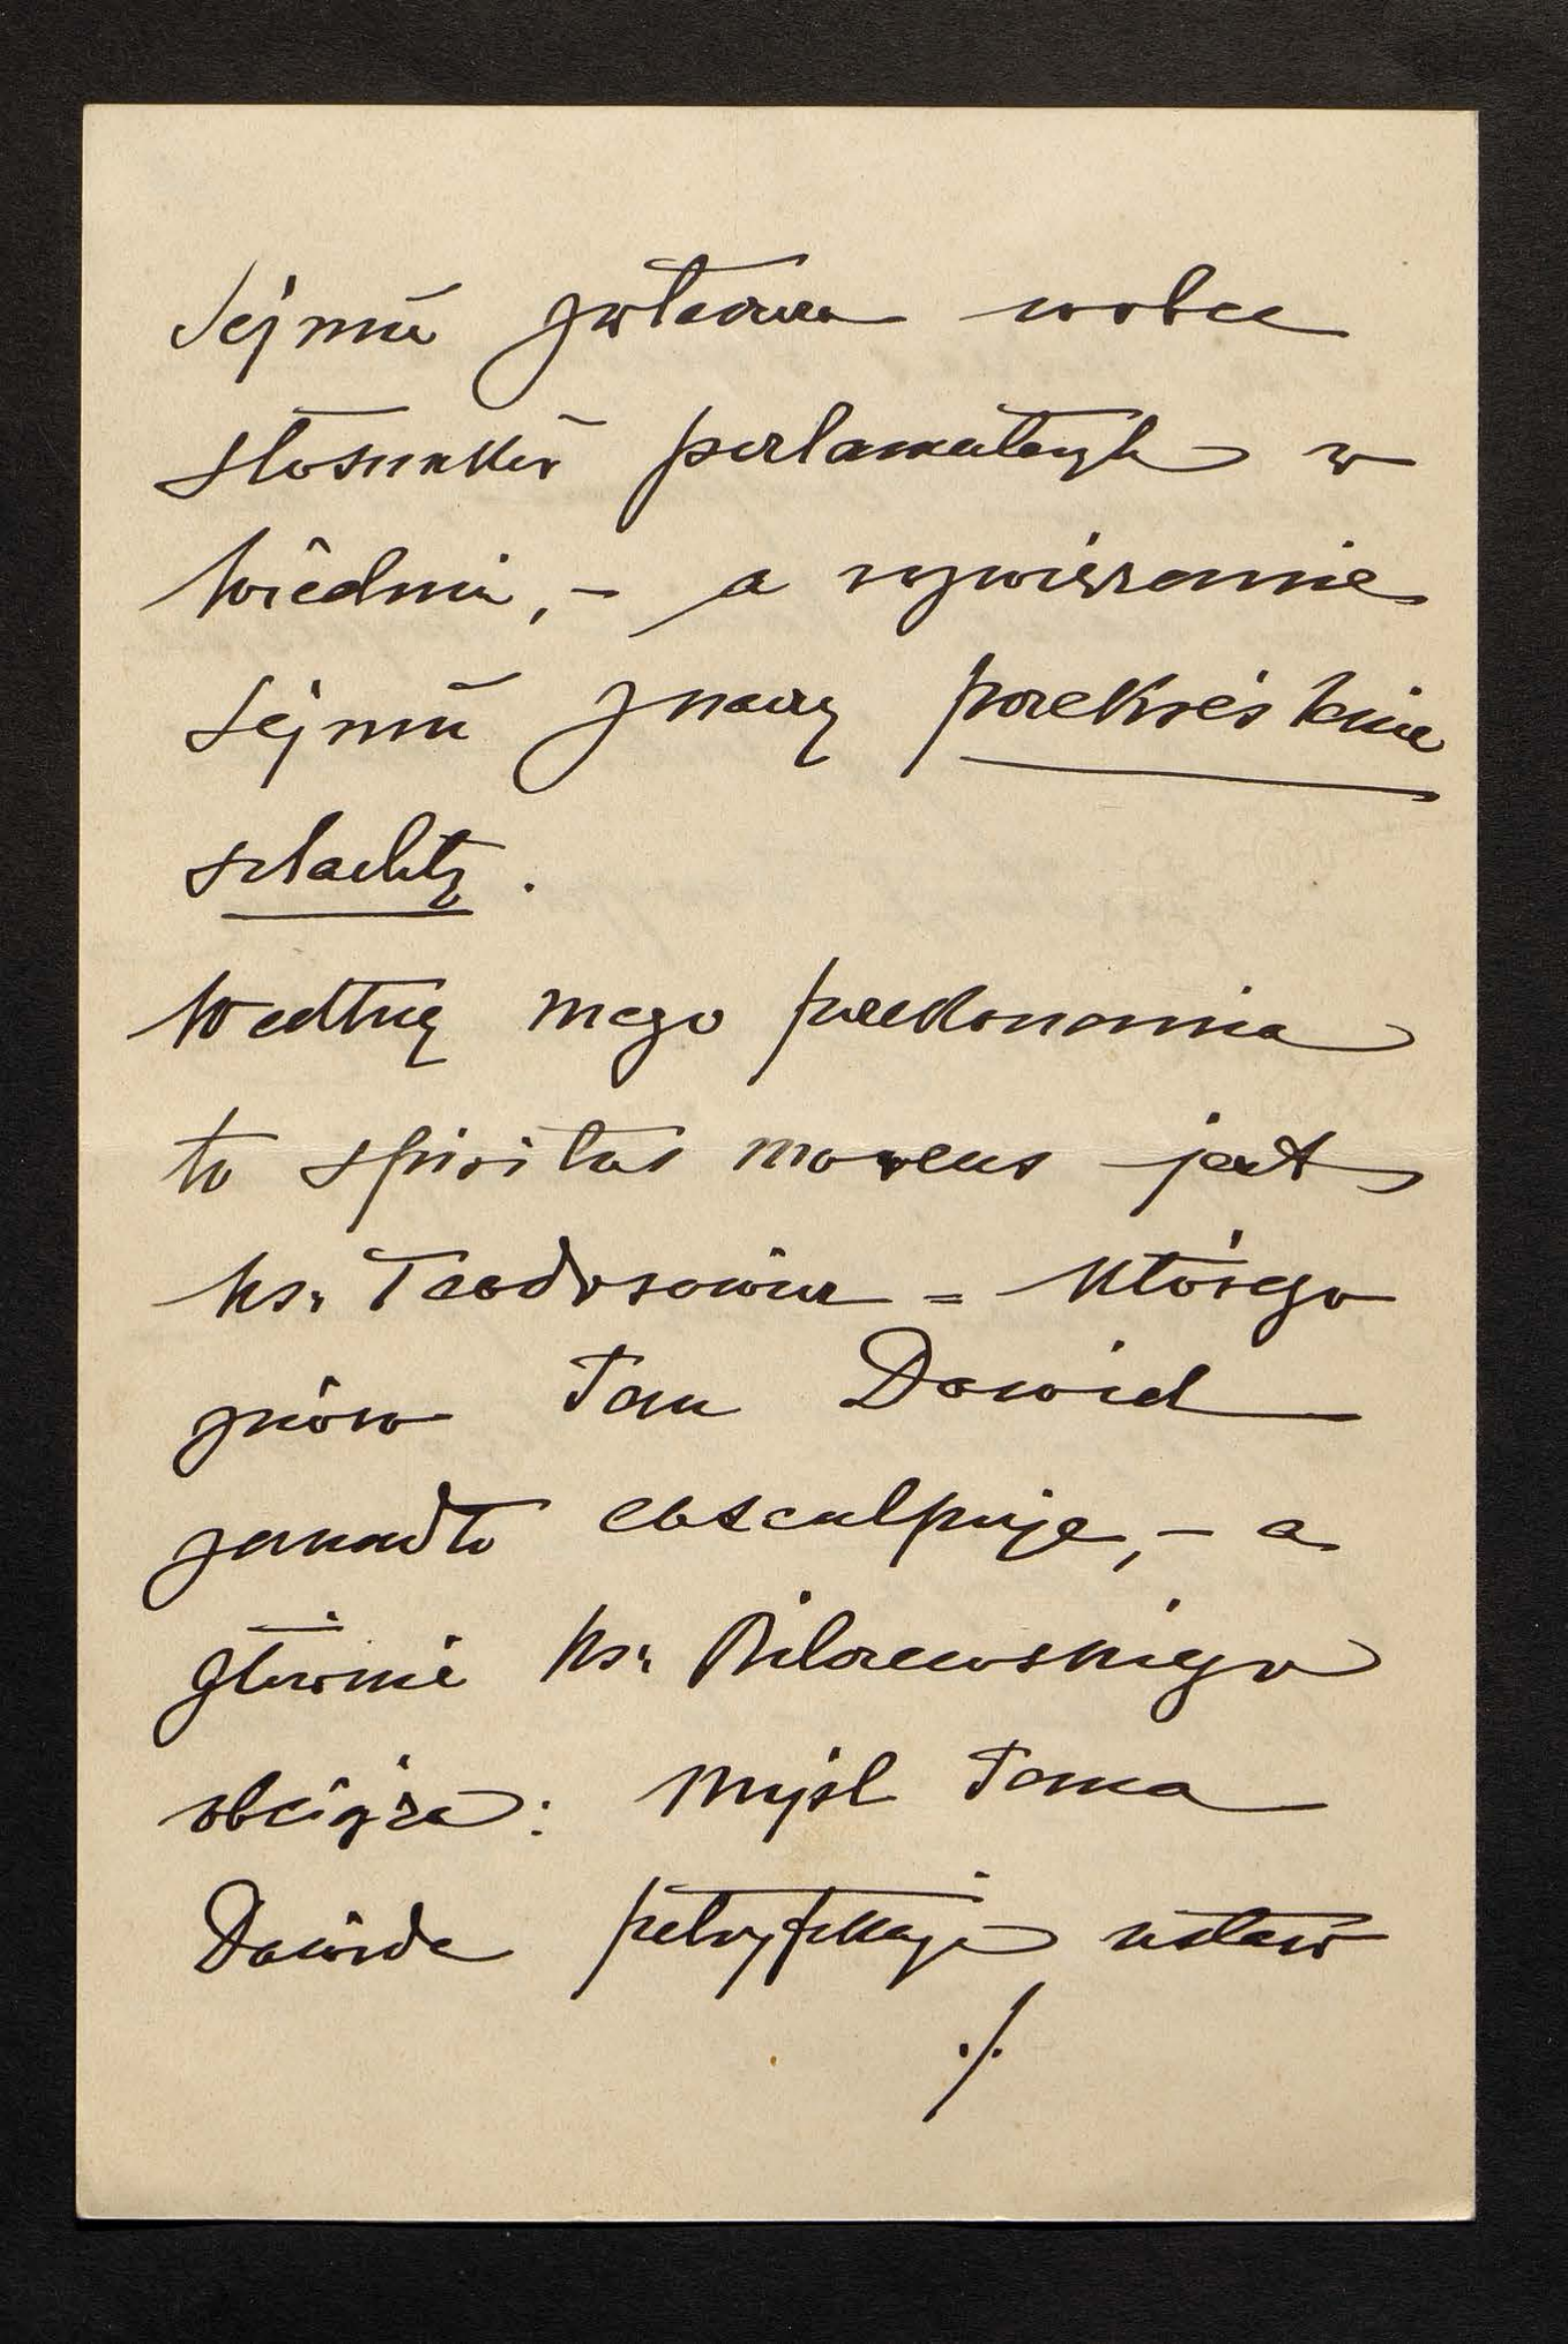 Sejmu zwłaszcza wobec
stosunków parlamentarnych w
Wiedniu, – a rozwiązanie
Sejmu znaczy przekreślenie
szlachty.
Według mego przekonania
to spiritus movens jest
ks. Teodorowicz = którego
znów Pan Dawid
zanadto eksculpuje, – a
głównie ks. Bilczewskiego
obciąża: Myśl Pana
Dawida petryfikacji ustaw
./.